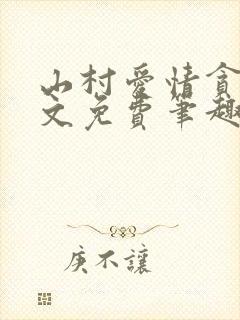 山村愛情貪
文免費筆趣
庚不讓